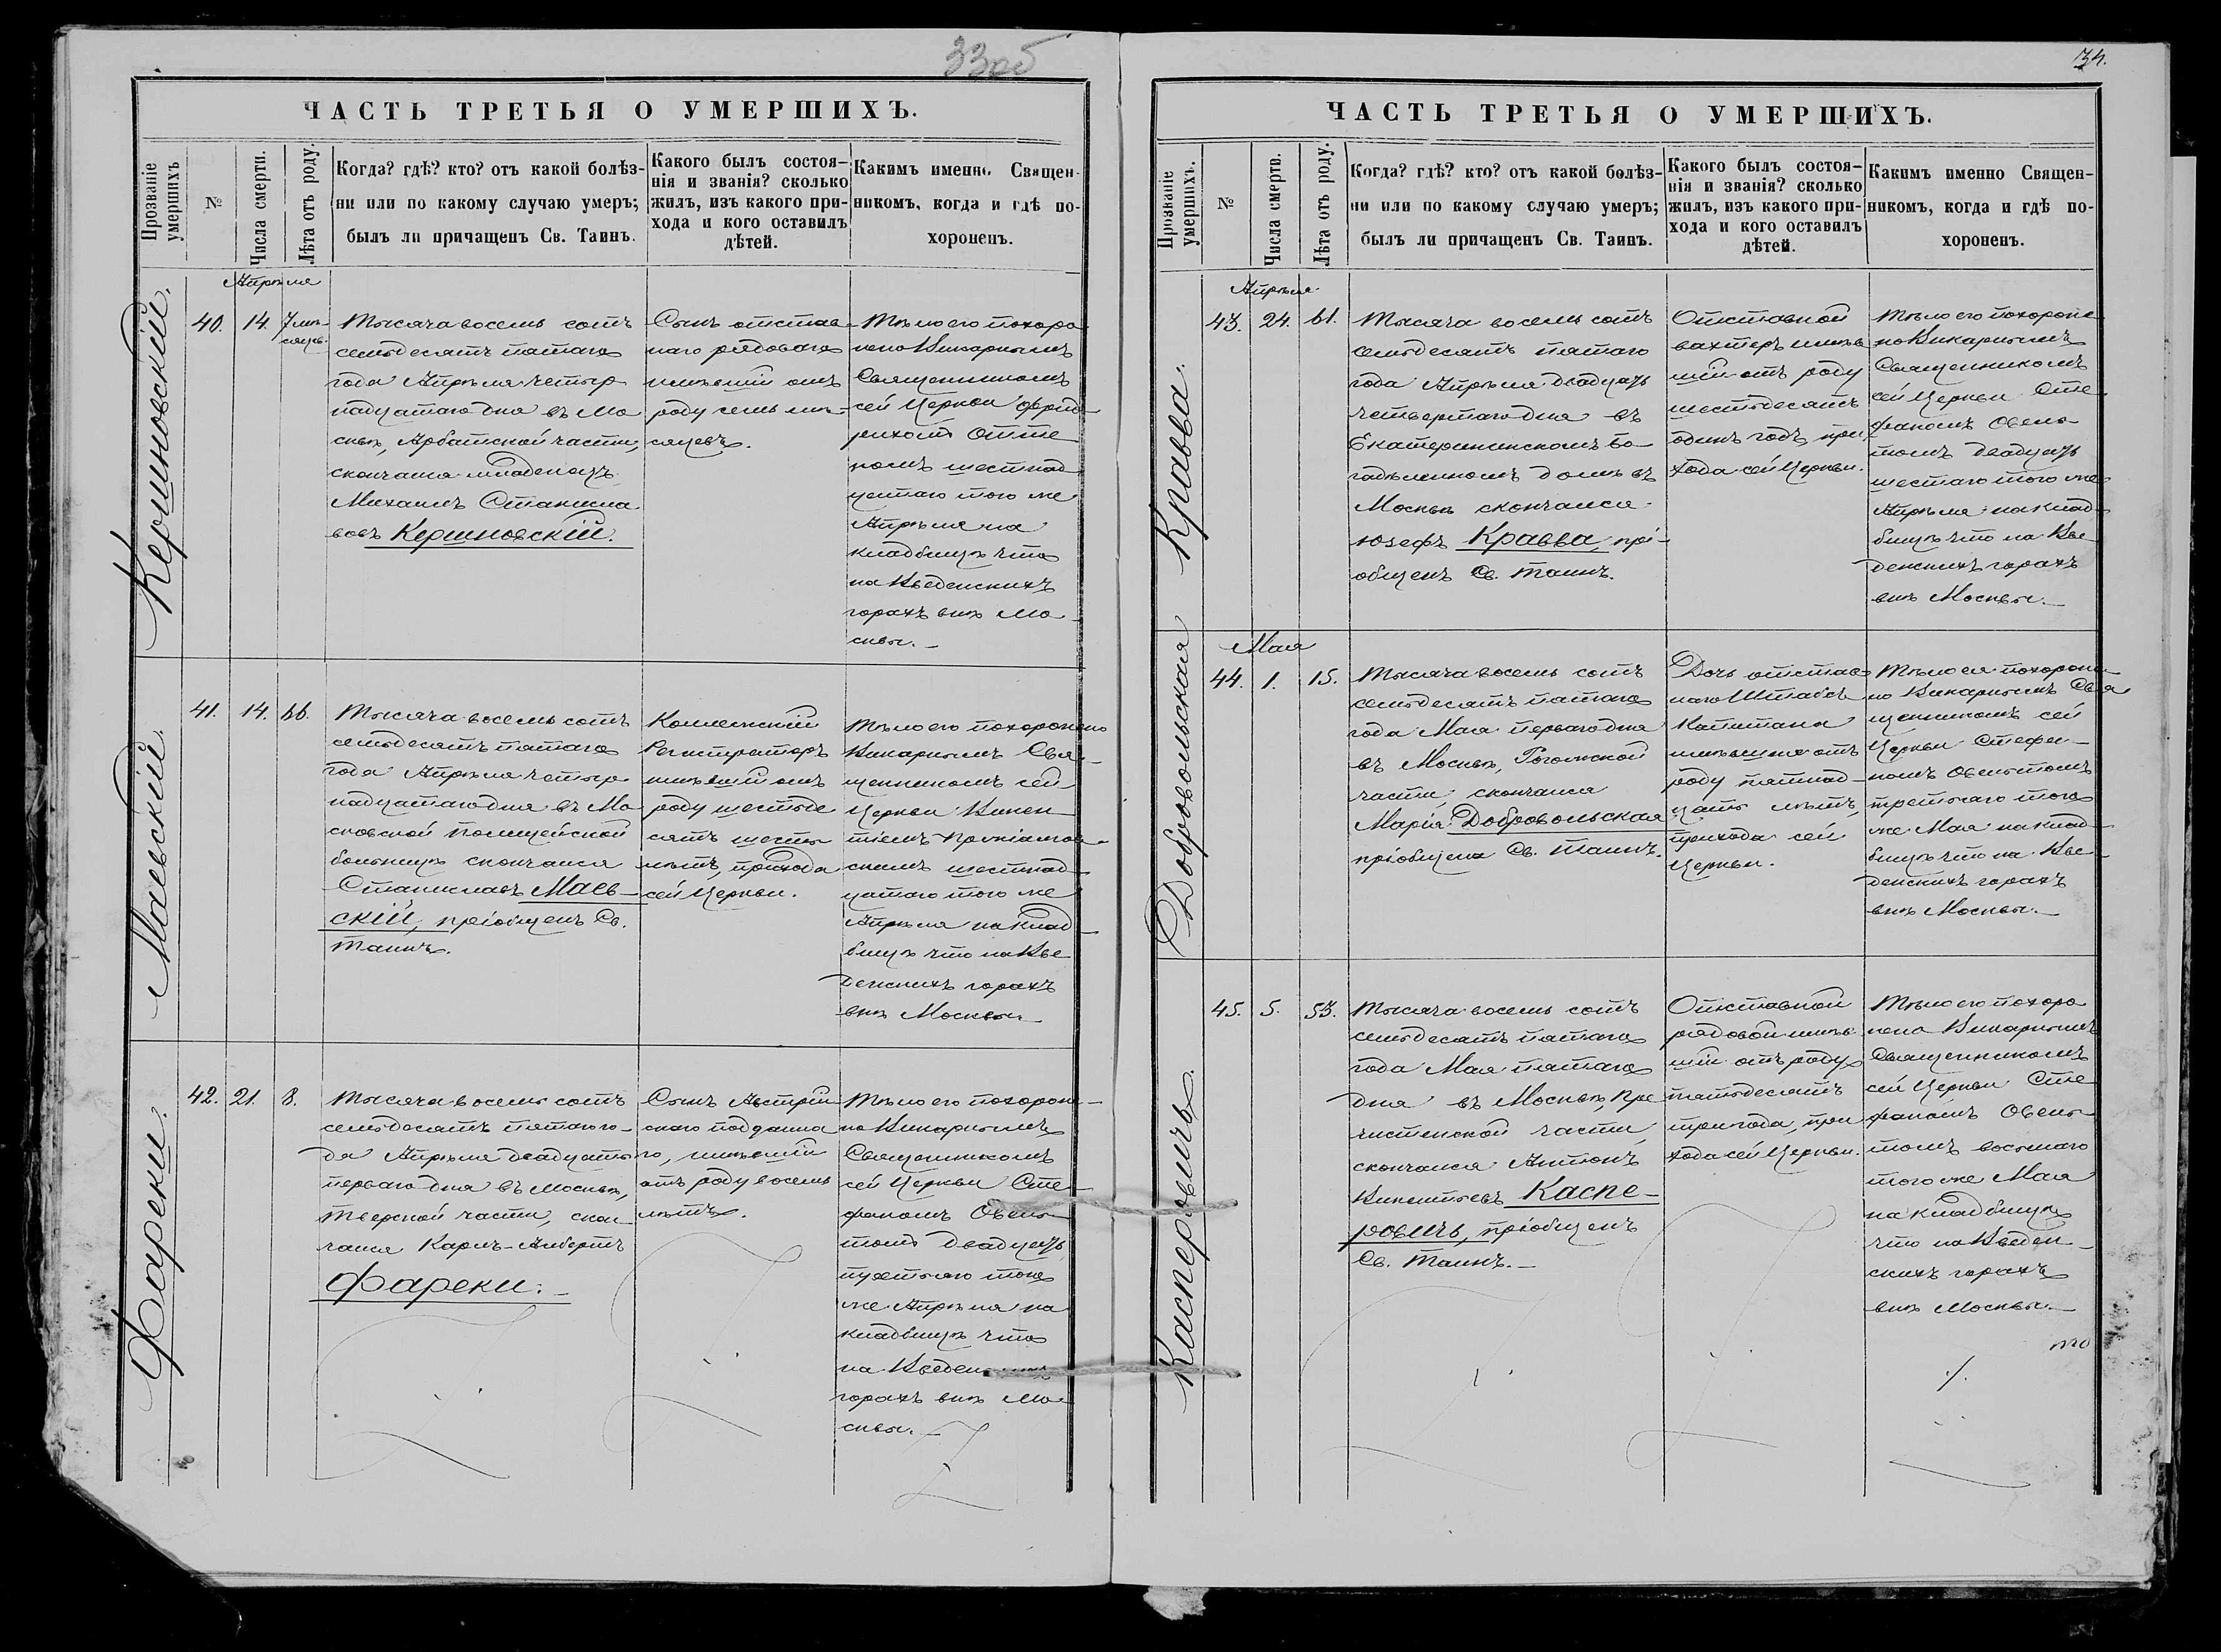 33об
ЧАСТЬ ТРЕТЬЯ О УМЕРШИХЪ.
Прозваніе умершихъ
№
Числа смерти.
Лѣта отъ роду.
Когда? гдѣ? кто? отъ какой болѣз-
ни или по какому случаю умеръ;
былъ ли причащенъ Св. Таинъ.
Какого былъ состоя-
нія и званія? сколько
жилъ, изъ какого при-
хода и кого оставилъ
дѣтей.
Какимъ именно Священ-
никомъ, когда и гдѣ по-
хороненъ.
Апрѣля
Кершновскій.
40.
14.
7 мѣ-
сяцев.
Тысяча восемь сотъ
семьдесятъ пятаго
года Апрѣля четыр
надцатаго дня въ Мо
сквѣ, Арбатской части,
скончался младенецъ
Михаилъ Станисла
вовъ Кершновскій.
Сынъ отстав-
наго рядоваго
имѣвшій отъ
роду семь мѣ-
сяцевъ.
Тѣло его похоро
нено Викарнымъ
Священникомъ
сей Церкви Фрид-
рихомъ Отте
номъ шестнад
цатаго того же
Апрѣля на
кладбищѣ что
на Введенскихъ
горахъ внѣ Мо-
сквы.-
Маевскій.
41.
14.
66.
Тысяча восемь сотъ
семьдесятъ пятаго
года Апрѣля четыр
надцатаго дня въ Мо
сковской Полицейской
больницѣ скончался
Станиславъ Маев-
скій, пріобщенъ Св.
Таинъ.
Коллежскій
Регистраторъ
имѣвшій отъ
роду шестьде
сятъ шесть
лѣтъ, прихода
сей Церкви.
Тѣло его похоронено
Викарнымъ Свя-
щенникомъ сей
Церкви Викен
тіемъ
скимъ шестнад-
цатаго того же
Апрѣля на клад-
бищѣ что на Вве
денскихъ горахъ
внѣ Москвы.-
Фареки.
42.
21.
8.
Тысяча восемь сотъ
семьдесятъ пятаго го-
да Апрѣля двадцать
перваго дня въ Москвѣ,
Тверской части, скон-
чался Карлъ-Албертъ
Фареки.-
Сынъ Австрій
скаго подданна
го, имѣвшій
отъ роду восемь
лѣтъ.
Тѣло его похороне-
но Викарнымъ
Священникомъ
сей Церкви Сте-
фаномъ Овель-
томъ двадцать
третьяго того
же Апрѣля на
кладбищѣ что
на Введенскихъ
горахъ внѣ Мо-
сквы.-
34.
ЧАСТЬ ТРЕТЬЯ О УМЕРШИХЪ.
Прозваніе умершихъ.
№
Числа смерти.
Лѣта отъ роду.
Когда? гдѣ? кто? отъ какой болѣз-
ни или по какому случаю умеръ;
былъ ли причащенъ Св. Таинъ.
Какого былъ состоя-
нія и званія? сколько
жилъ, изъ какого при-
хода и кого оставилъ
дѣтей.
Какимъ именно Священ-
никомъ, когда и гдѣ по-
хороненъ.
Апрѣля.
Кравва.
43.
24.
61.
Тысяча восемь сотъ
семьдесятъ пятаго
года Апрѣля двадцать
четвертаго дня въ
Екатерининскомъ бо-
гадѣленномъ домѣ въ
Москвѣ скончался
Юзефъ Кравва, прі-
общенъ Св. Таинъ.
Отставной
вахтеръ имѣв
шій отъ роду
шестьдесятъ
одинъ годъ, при
хода сей Церкви.
Тѣло его похороне
но Викарнымъ
Священникомъ
сей Церкви Сте
фаномъ Овель-
томъ двадцать
шестаго того же
Апрѣля на клад-
бищѣ что на Вве
денскихъ горахъ
внѣ Москвы.-
Мая
Добровольская
44.
1.
15.
Тысяча восемь сотъ
семьдесятъ пятаго
года Мая перваго дня
въ Москвѣ, Рогожской
части, скончалася
Марія Добровольская
пріобщена Св. Таинъ.
Дочь отстав-
наго Штабсъ
Капитана
имѣвшая отъ
роду пятнад-
цать лѣтъ,
прихода сей
Церкви.
Тѣло ея похороне-
но Викарнымъ Свя
щенникомъ сей
Церкви Стефа-
номъ Овельтомъ
третьяго того
же Мая на клад-
бищѣ что на Вве-
денскихъ горахъ
внѣ Москвы.-
Касперовичъ.
45.
5.
53.
Тысяча восемь сотъ
семьдесятъ пятаго
года Мая пятаго
дня въ Москвѣ, Пре
чистенской части
скончался Антонъ
Викентьевъ Каспе-
ровичъ, пріобщенъ
Св. Таинъ.-
Отставной
рядовой имѣв
шій отъ роду
пятьдесятъ
три года, при
хода сей Церкви.
Тѣло его похоро
нено Викарнымъ
Священникомъ
сей Церкви Сте
фаномъ Овель-
томъ восьмаго
того же Мая
на кладбищѣ
что на Введен-
скихъ горахъ
внѣ Москвы.-
то